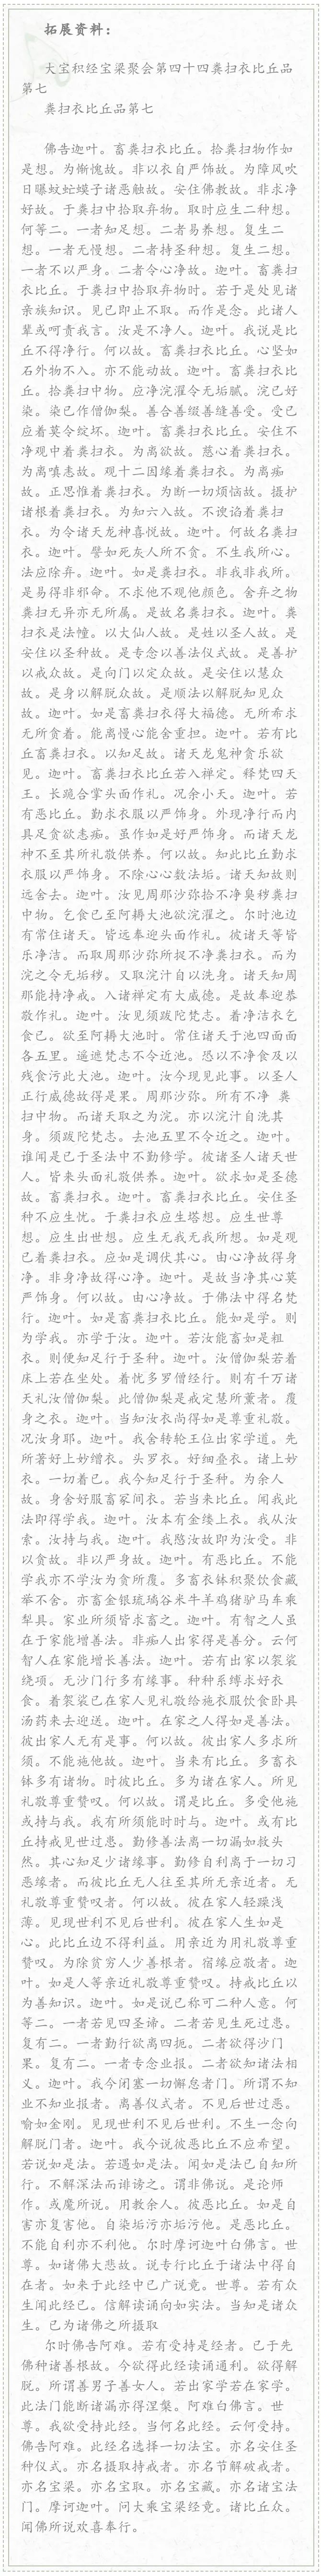 拓展资料：
大宝积经宝梁聚会第四十四粪扫衣比丘品
第七
粪扫衣比丘品第七
佛告迦叶。畜粪扫衣比丘。拾粪扫物作如
是想。为惭愧故。非以衣自严饰故。为障风吹
日曝蚊虻蟆子诸恶触故。安住佛教故。非求净
好故。于粪扫中拾取弃物。取时应生二种想。
何等二。一者知足想。二者易养想。复生二
想。一者无慢想。二者持圣种想。复生二想。
一者不以严身。二者令心净故。迦叶。畜粪扫
衣比丘。于粪扫中拾取弃物时。若于是处见诸
亲族知识。见已即止不取。而作是念。此诸人
辈或呵责我言。汝是不净人。迦叶。我说是比
丘不得净行。何以故。畜粪扫衣比丘。心坚如
石外物不入。亦不能动故。迦叶。畜粪扫衣比
丘。拾粪扫中物。应净浣濯令无垢腻。浣已好
染。染已作僧伽梨。善合善缀善缝善受。受已
应着莫令绽坏。迦叶。畜粪扫衣比丘。安住不
净观中着粪扫衣。为离欲故。慈心着粪扫衣。
为离嗔恚故。观十二因缘着粪扫衣。为离痴
故。正思惟着粪扫衣。为断一切烦恼故。摄护
诸根着粪扫衣。为知六入故。不谀谄着粪扫
衣。为令诸天龙神喜悦故。迦叶。何故名粪扫
衣。迦叶。譬如死灰人所不贪。不生我所心。
法应除弃。迦叶。如是粪扫衣。非我非我所。
是易得非邪命。不求他不观他颜色。舍弃之物
粪扫无异亦无所属。是故名粪扫衣。迦叶。粪
扫衣是法幢。以大仙人故。是姓以圣人故。是
安住以圣种故。是专念以善法仪式故。是善护
以戒众故。是向门以定众故。是安住以慧众
故。是身以解脱众故。是顺法以解脱知见众
故。迦叶。如是畜粪扫衣得大福德。无所希求
无所贪着。能离慢心能舍重担。迦叶。若有比
丘畜粪扫衣。以知足故。诸天龙鬼神贪乐欲
见。迦叶。畜粪扫衣比丘若入禅定。释梵四天
王。长跪合掌头面作礼。况余小天。迦叶。若
有恶比丘。勤求衣服以严饰身。外现净行而内
具足贪欲恚痴。虽作如是好严饰身。而诸天龙
神不至其所礼敬供养。何以故。知此比丘勤求
衣服以严饰身。不除心心数法垢。诸天知故则
远舍去。迦叶。汝见周那沙弥拾不净臭秽粪扫
中物。乞食已至阿耨大池欲浣濯之。尔时池边
有常住诸天。皆远奉迎头面作礼。彼诸天等皆
乐净洁。而取周那沙弥所捉不净粪扫衣。而为
浣之令无垢秽。又取浣汁自以洗身。诸天知周
那能持净戒。入诸禅定有大威德。是故奉迎恭
敬作礼。迦叶。汝见须跋陀梵志。着净洁衣乞
食已。欲至阿耨大池时。常住诸天于池四面面
各五里。遥遮梵志不令近池。恐以不净食及以
残食污此大池。迦叶。汝今现见此事。以圣人
正行威德故得是果。周那沙弥。所有不净 粪
扫中物。而诸天取之为浣。亦以浣汁自洗其
身。须跋陀梵志。去池五里不令近之。迦叶。
谁闻是已于圣法中不勤修学。彼诸圣人诸天世
人。皆来头面礼敬供养。迦叶。欲求如是圣德
故。畜粪扫衣。迦叶。畜粪扫衣比丘。安住圣
种不应生忧。于粪扫衣应生塔想。应生世尊
想。应生出世想。应生无我无我所想。如是观
已着粪扫衣。应如是调伏其心。由心净故得身
净。非身净故得心净。迦叶。是故当净其心莫
严饰身。何以故。由心净故。于佛法中得名梵
行。迦叶。如是畜粪扫衣比丘。能如是学。则
为学我。亦学于汝。迦叶。若汝能畜如是粗
衣。则便知足行于圣种。迦叶。汝僧伽梨若着
床上若在坐处。着忧多罗僧经行。则有千万诸
天礼汝僧伽梨。此僧伽梨是戒定慧所薰者。覆
身之衣。迦叶。当知汝衣尚得如是尊重礼敬。
况汝身耶。迦叶。我舍转轮王位出家学道。先
所著好上妙缯衣。头罗衣。好细叠衣。诸上妙
衣。一切着已。我今知足行于圣种。为余人
故。身舍好服畜冢间衣。若当来比丘。闻我此
法即得学我。迦叶。汝本有金缕上衣。我从汝
索。汝持与我。迦叶。我愍汝故即为汝受。非
以贪故。非以严身故。迦叶。有恶比丘。不能
学我亦不学汝为贪所覆。多畜衣钵积聚饮食藏
举不舍。亦畜金银琉璃谷米牛羊鸡猪驴马车乘
犁具。家业所须皆求畜之。迦叶。有智之人虽
在于家能增善法。非痴人出家得是善分。云何
智人在家能增长善法。迦叶。若有出家以袈裟
绕项。无沙门行多有缘事。种种系缚求好衣
食。着袈裟已在家人见礼敬给施衣服饮食卧具
汤药来去迎送。迦叶。在家之人得如是善法。
彼出家人无有是事。何以故。彼出家人多求所
须。不能施他故。迦叶。当来有比丘。多畜衣
钵多有诸物。时彼比丘。多为诸在家人。所见
礼敬尊重赞叹。何以故。谓是比丘。多受他施
或持与我。我有所须能时时与。迦叶。或有比
丘持戒见世过患。勤修善法离一切漏如救头
然。其心知足少诸缘事。勤修自利离于一切习
恶缘者。而彼比丘无人往至其所无亲近者。无
礼敬尊重赞叹者。何以故。彼在家人轻躁浅
薄。见现世利不见后世利。彼在家人生如是
心。此比丘边不得利益。用亲近为用礼敬尊重
赞叹。为除贫穷人少善根者。宿缘应敬者。迦
叶。如是人等亲近礼敬尊重赞叹。持戒比丘以
为善知识。迦叶。如是说已称可二种人意。何
等二。一者若见四圣谛。二者若见生死过患。
复有二。一者勤行欲离四扼。二者欲得沙门
果。复有二。一者专念业报。二者欲知诸法相
义。迦叶。我今闭塞一切懈怠者门。所谓不知
业不知业报者。离善仪式者。不见后世过恶。
喻如金刚。见现世利不见后世利。不生一念向
解脱门者。迦叶。我今说彼恶比丘不应希望。
若说如是法。若遇如是法。闻如是法已自知所
行。不解深法而诽谤之。谓非佛说。是论师
作。或魔所说。用教余人。彼恶比丘。如是自
害亦复害他。自染垢污亦垢污他。是恶比丘。
不能自利亦不利他。尔时摩诃迦叶白佛言。世
尊。如诸佛大悲故。说专行比丘于诸法中得自
在者。如来于此经中已广说竟。世尊。若有众
生闻此经已。信解读诵向如实法。当知是诸众
生。已为诸佛之所摄取
尔时佛告阿难。若有受持是经者。已于先
佛种诸善根故。今欲得此经读诵通利。欲得解
脱。所谓善男子善女人。若出家学若在家学。
此法门能断诸漏亦得涅槃。阿难白佛言。世
尊。我欲受持此经。当何名此经。云何受持。
佛告阿难。此经名选择一切法宝。亦名安住圣
种仪式。亦名摄取持戒者。亦名节解破戒者。
亦名宝梁。亦名宝取。亦名宝藏。亦名诸宝法
门。摩诃迦叶。问大乘宝梁经竟。诸比丘众。
闻佛所说欢喜奉行。